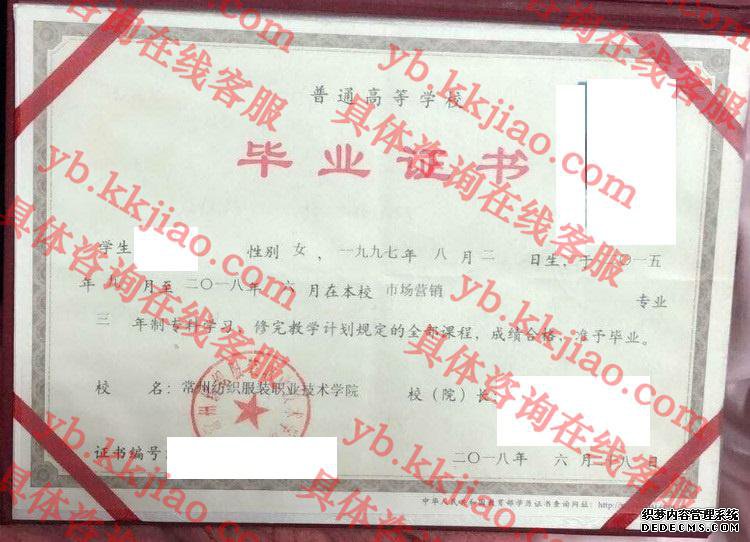 普通高等学校
毕业证书
学生 性别 女，一九九七年 八 月 二 日生，于二〇一五
年 九 月至 二〇一八年 六 月在本校 市场营销 专业
三 年制专科学习，修完教学计划规定的全部课程，成绩合格，准予毕业。
校 名：常州纺织服装职业技术学院 校（院）长：
证书编号：
二〇一八年 六 月二十八日
中华人民共和国教育部学历证书查询网址：http://
yb.kkjiao.com
具体咨询在线客服
yb.kkjiao.com
具体咨询在线客服
yb.kkjiao.com
具体咨询在线客服
yb.kkjiao.com
具体咨询在线客服
yb.kkjiao.com
具体咨询在线客服
织梦内容管理系统
DEDECMS.COM